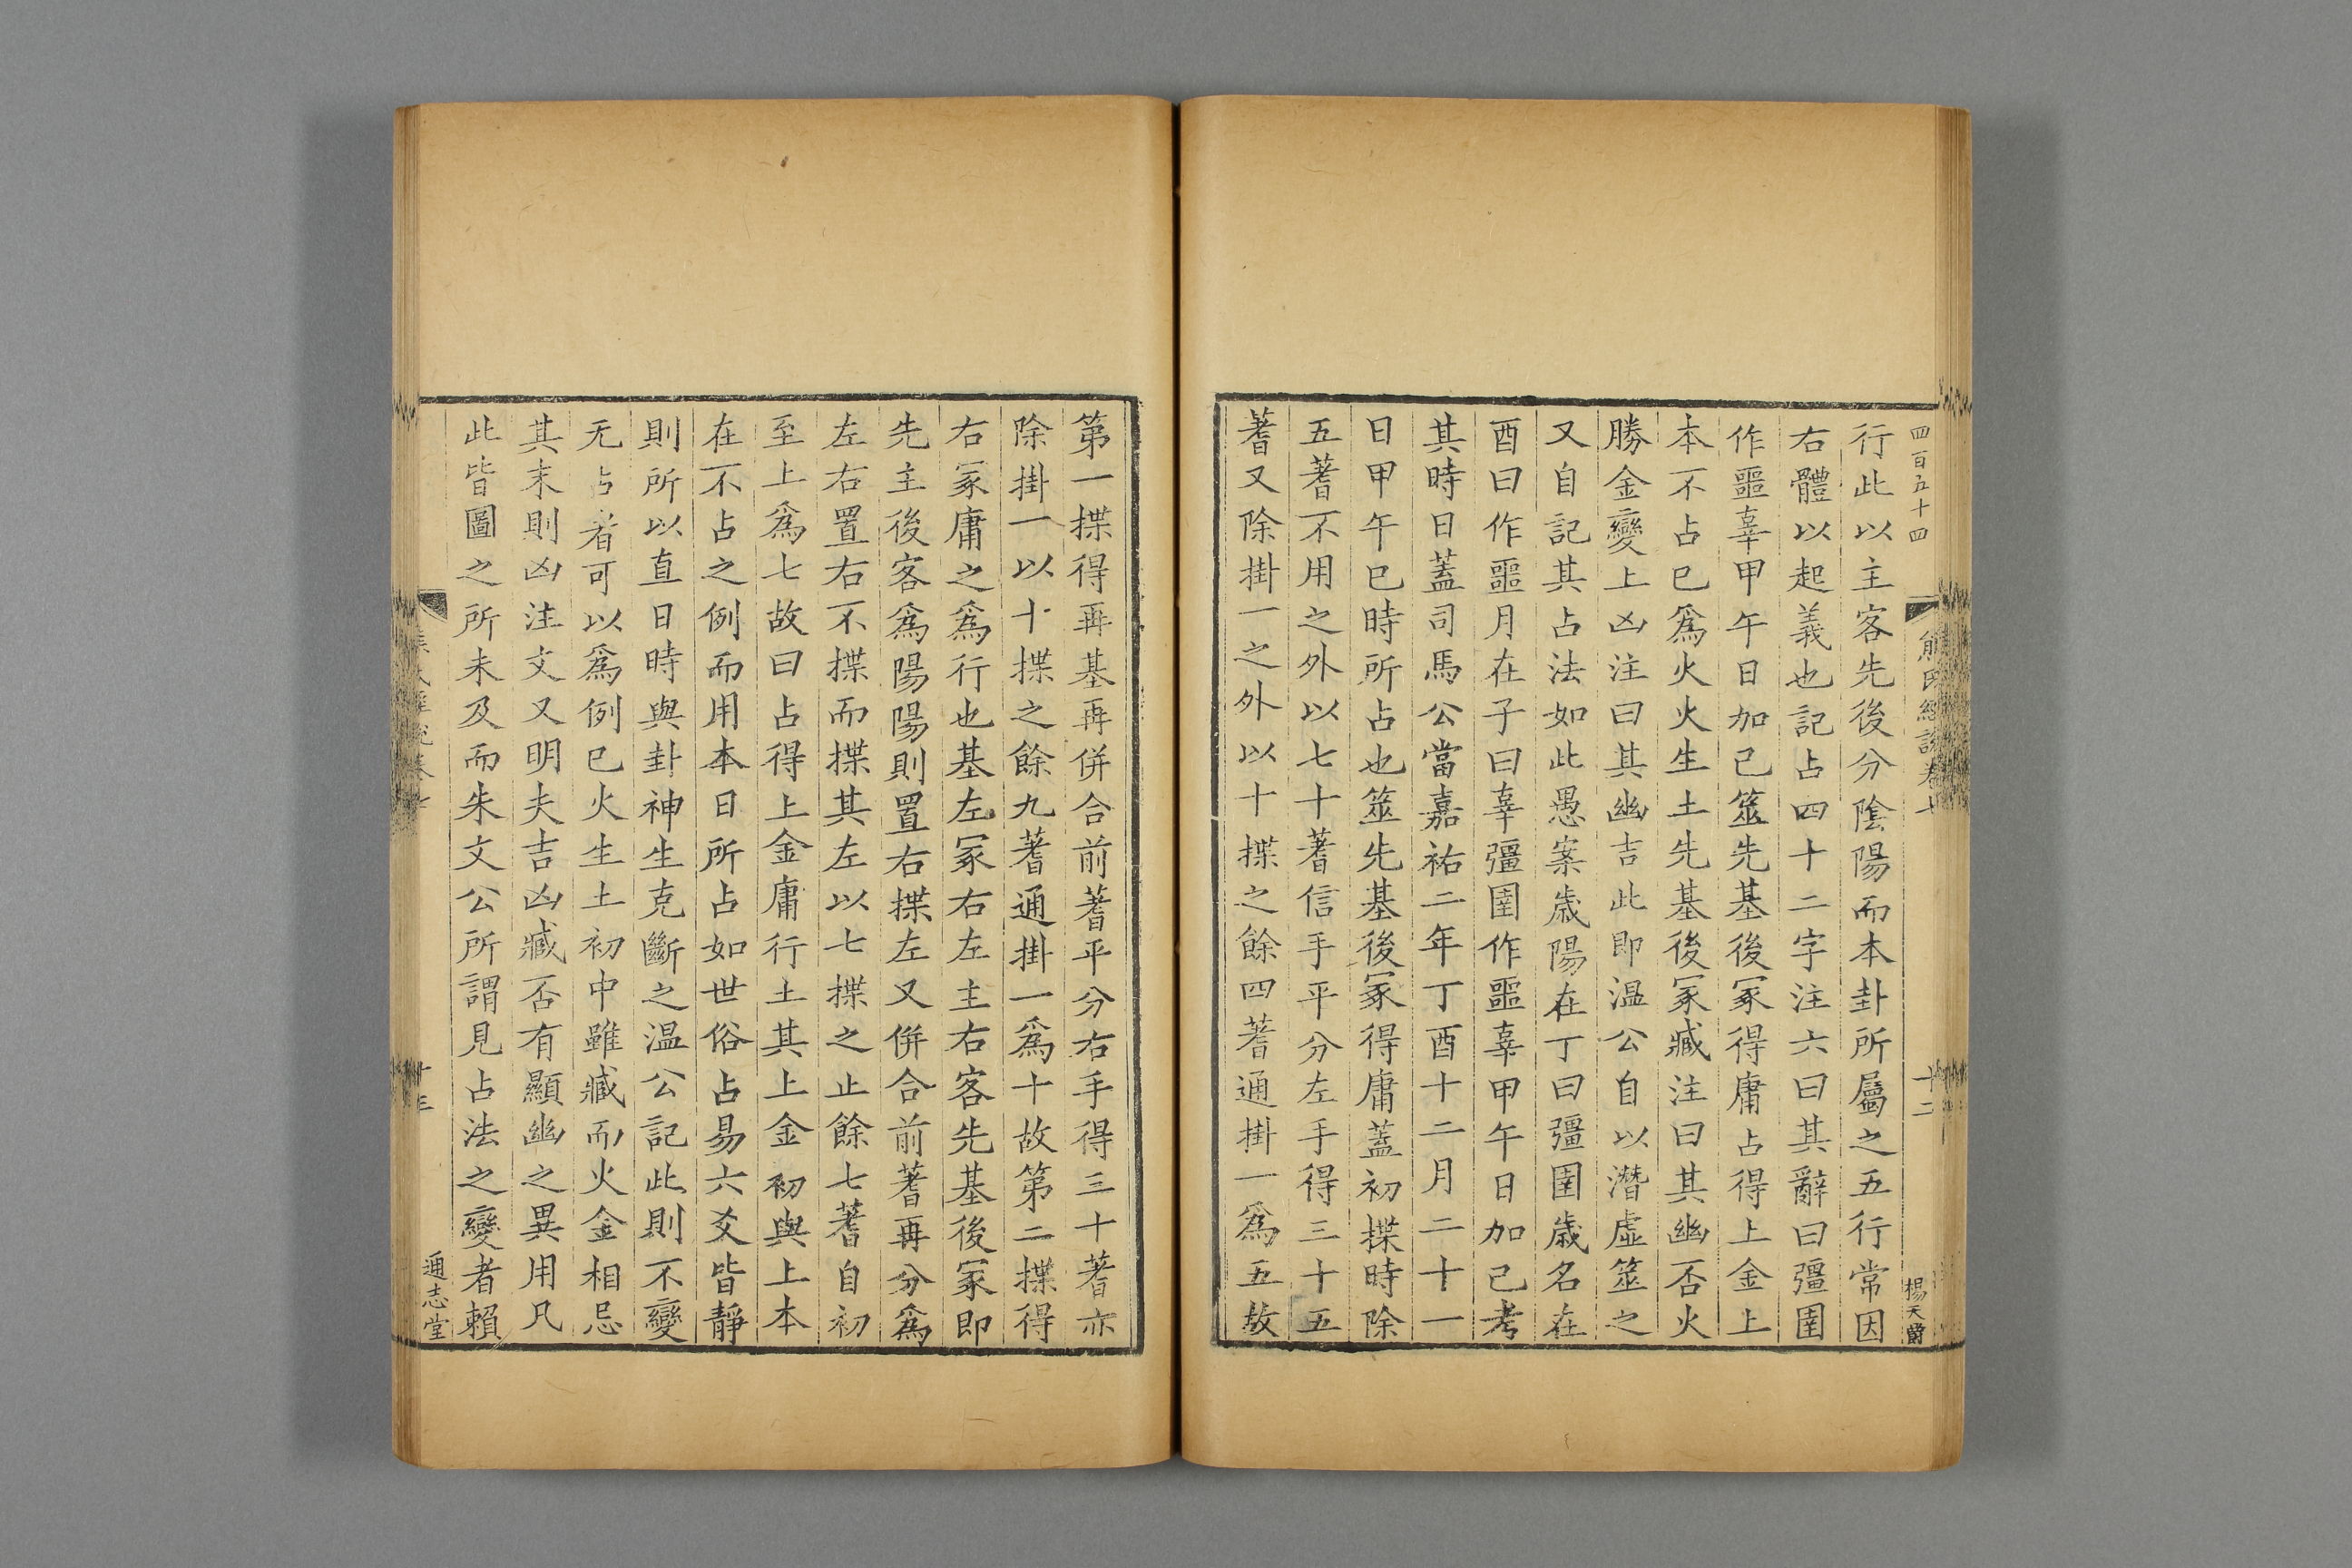 四百五十四
熊氏經說卷七
十二
楊天爵
行此以主客先後分陰陽而本卦所屬之五行常因
右體以起義也記占四十二字注六曰其辭曰彊圉
作噩辜甲午日加己筮先基後冢得庸占得上金上
本不占已爲火火生土先基後冢臧注曰其幽否火
勝金變上凶注曰其幽吉此即溫公自以潛虛筮之
又自記其占法如此愚案歲陽在丁曰彊圉歲名在
酉曰作噩月在子曰辜彊圉作噩辜甲午日加己考
其時日蓋司馬公當嘉祐二年丁酉十二月二十一
日甲午巳時所占也筮先基後冢得庸蓋初揲時除
五蓍不用之外以七十蓍信手平分左手得三十五
蓍又除掛一之外以十揲之餘四蓍通掛一爲五故
第一揲得再基再併合前蓍平分右手得三十蓍亦
除掛一以十揲之餘九蓍通掛一爲十故第二揲得
右冢庸之爲行也基左冢右左主右客先基後冢即
先主後客爲陽陽則置右揲左又併合前蓍再分爲
左右置右不揲而揲其左以七揲之止餘七蓍自初
至上爲七故曰占得上金庸行土其上金初與上本
在不占之例而用本日所占如世俗占易六爻皆靜
則所以直日時與卦神生克斷之溫公記此則不變
无占者可以爲例巳火生土初中雖臧而火金相忌
其末則凶注文又明夫吉凶臧否有顯幽之異用凡
此皆圖之所未及而朱文公所謂見占法之變者賴
十三
通志堂